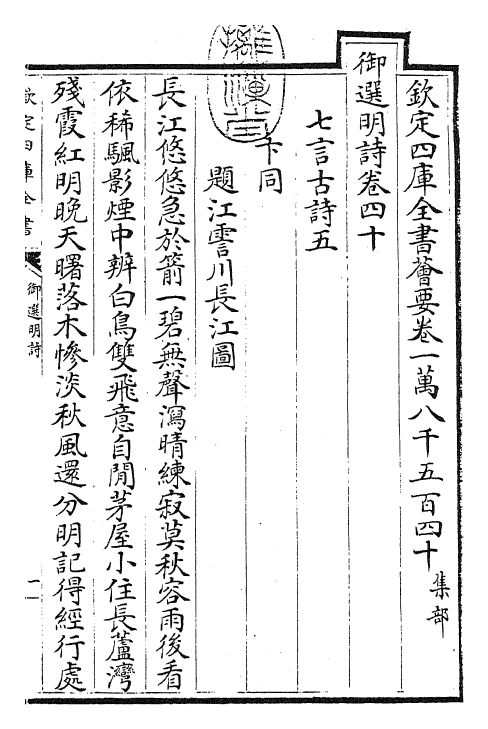 欽定四庫全書薈要卷一萬八千五百四十集部
御選明詩卷四十
七言古詩五
卞同
題江雲川長江圖
長江悠悠急於箭一碧無聲瀉晴練寂莫秋容雨後看
依稀颿影煙中辨白鳥雙飛意自閒茅屋小住長蘆灣
殘霞紅明晩天曙落木慘淡秋風還分明記得經行處
欽定四庫全書
御選明詩
一